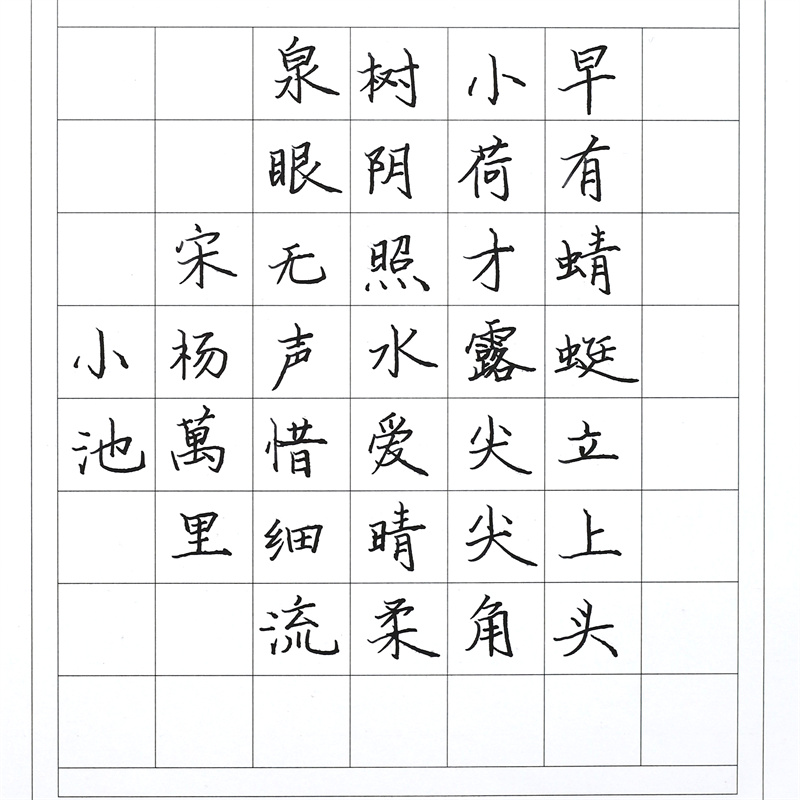 小池
宋杨萬里
泉眼无声惜细流
树阴照水爱晴柔
小荷才露尖尖角
早有蜻蜓立上头